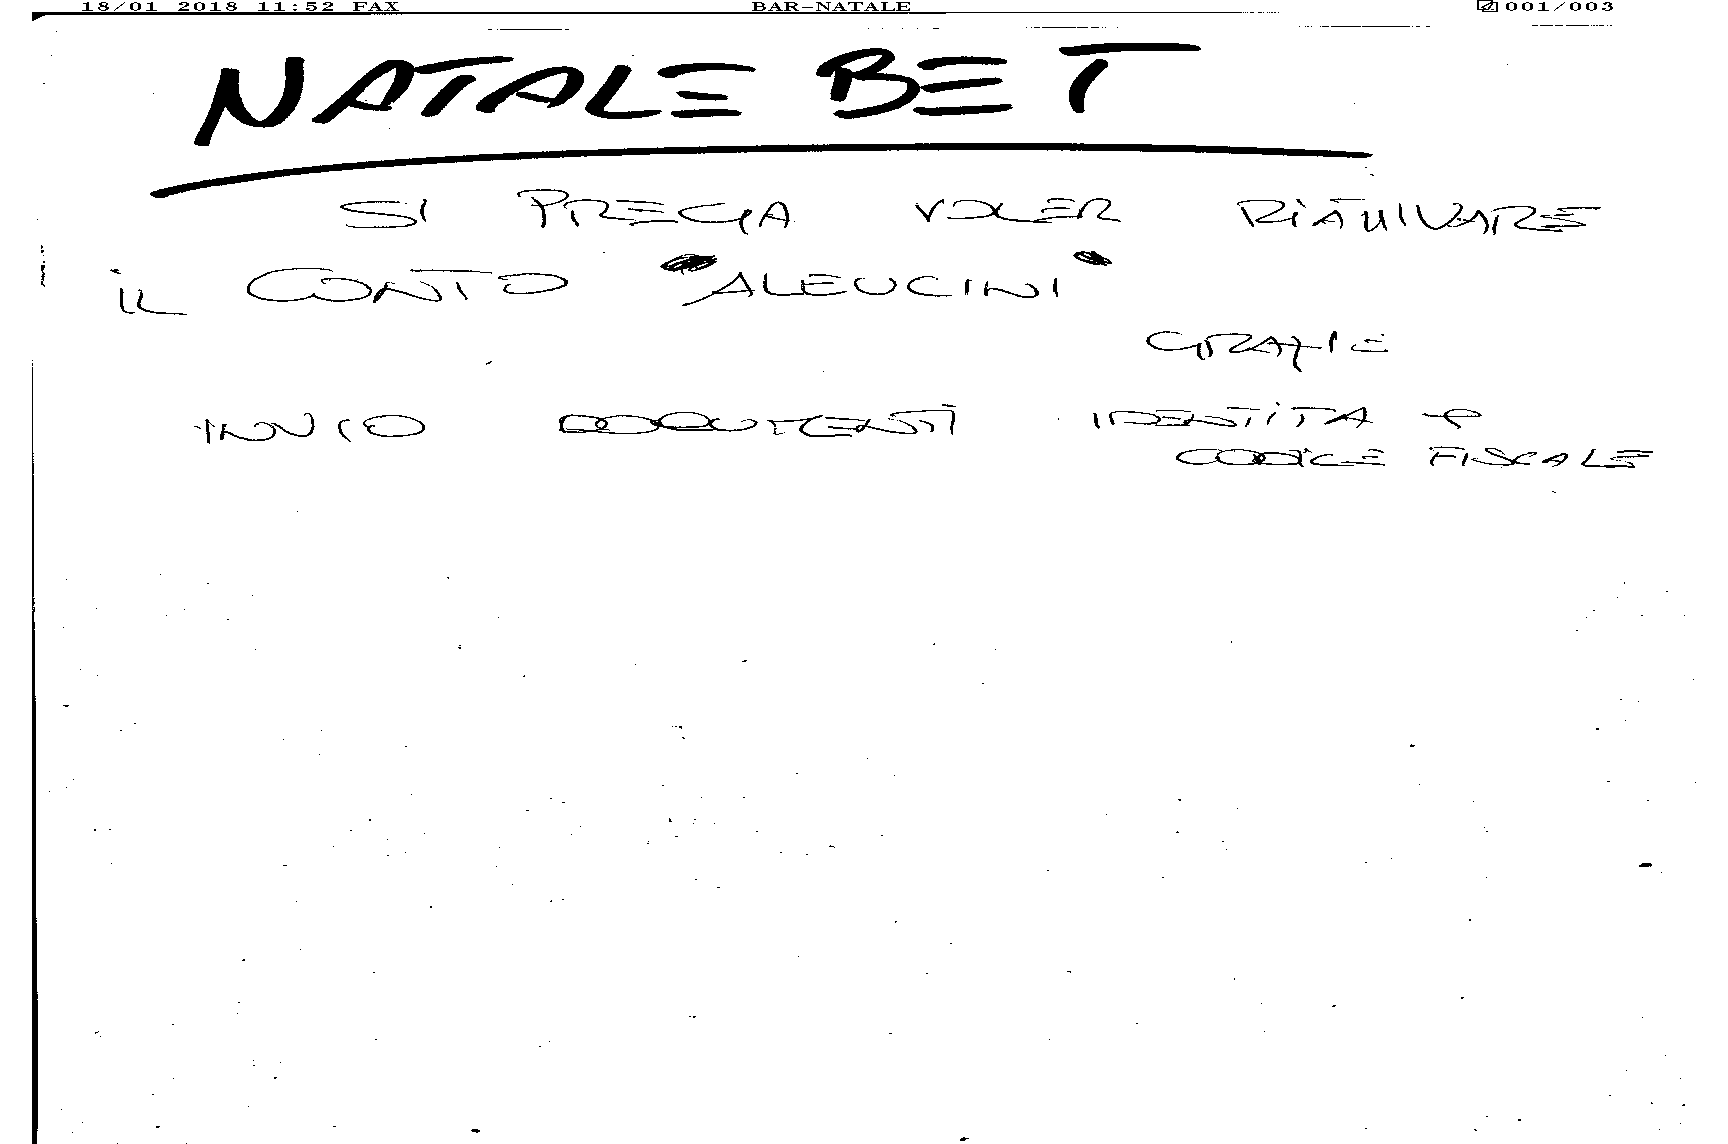 18/01 2018 11:52 FAX BAR-NATALE 001/003
NATALE BET
SI PREGA VOLER RIATTIVARE
IL CONTO "ALEUCINI"
GRAZIE
INVIO DOCUMENTI IDENTITA e
CODICE FISCALE